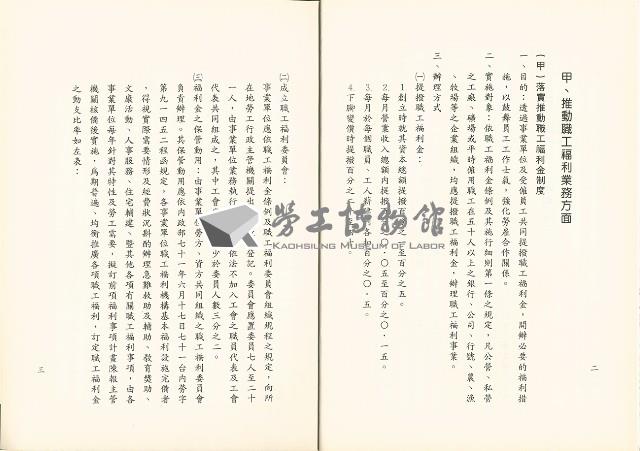 甲、推動職工福利業務方面
(甲)落實推動職工福利金制度
一、目的：透過事業單位及受僱員工共同提撥職工福利金，開辦必要的福利措
施，以鼓舞員工工作士氣，強化勞資合作關係。
二、實施對象：依職工福利金條例及其施行細則第一條之規定，凡公營、私營
之工廠、礦場或平時僱用職工在五十人以上之銀行、公司、行號、農、漁
、牧場等之企業組織，均應提撥職工福利金，辦理職工福利事業。
三、辦理方式
(一)提撥職工福利金：
1 創立時就其資本總額提撥百分之一至百分之五。
2.每月營業收入總額內提撥百分之〇.〇五至百分之〇.一五。
3.每月於每個職員、工人薪 各扣百分之〇.五。
4.下腳變價時提撥百分之二
二
(二)成立職工福利委員會：
事業單位應依職工福利金條例及職工福利委員會組織規程之規定，向所
在地勞工行政主管機關提出 登記。委員會應置委員七人至二十
一人，由事業單位業務執行 依法不加入工會之職員代表及工會
代表共同組成，其中工會 少於委員人數三分之二。
(三)福利金之保管動用：由事業單位勞方、資方共同組織之職工福利委員會
負責辦理。其保管動用應依內政部七十一年六月十七日七十一台內勞字
第九一四五二程函規定，各事業單位職工福利機構基本福利設施完備者
，得視實際需要情形及經費狀況斟酌辦理急難救助及輔助、教育獎助、
文康活動、人事服務、住宅輔建、暨其他各項有關職工福利事項，由各
事業單位每年針對其特性及勞工需要，擬訂前項福利事項計畫陳報主管
機關核備後實施，為期普遍、均衡推廣各項職工福利，訂定職工福利金
之動支比率如左表：
三
勞工博物館
KAOHSIUNG MUSEUM OF LABOR